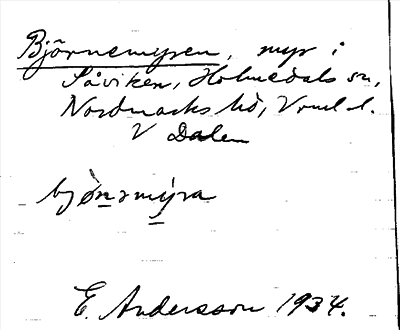 Björnemyren, myr i
Såviken, Holmedals sn,
Nordmarks hd, Vrml l.
V Dalen
bjö̀ṉamy̱ra
E. Andersson 1934.